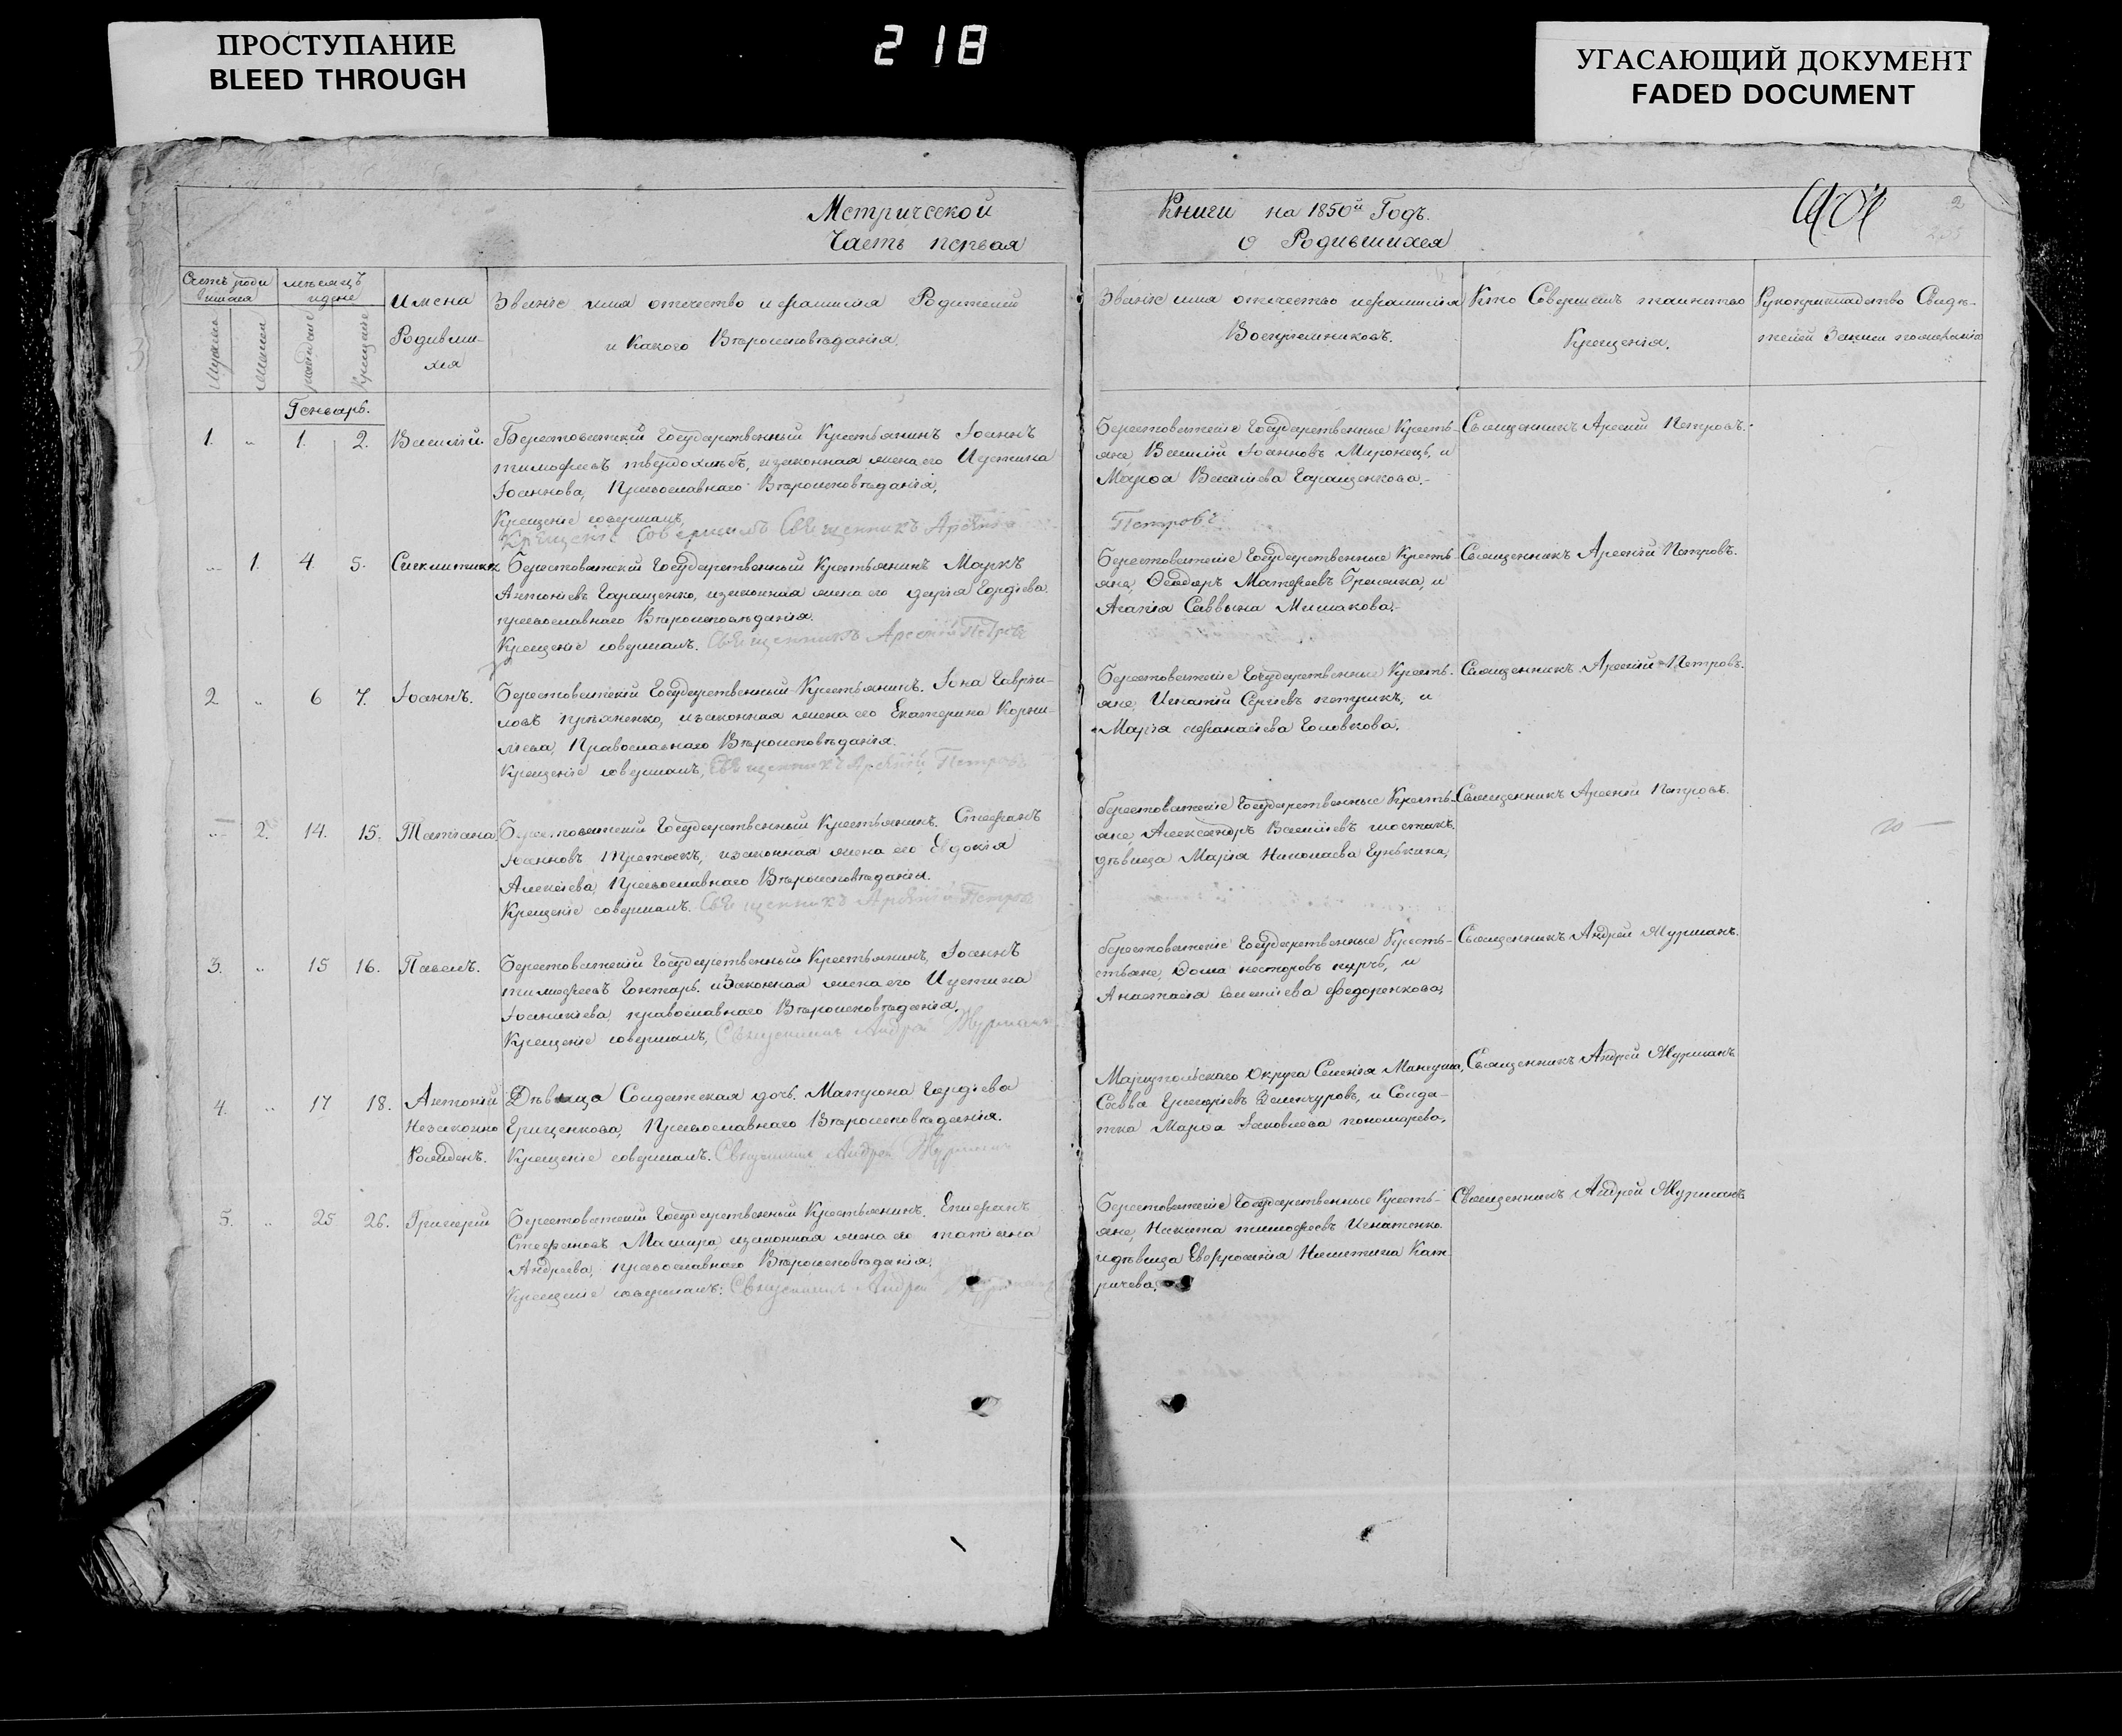 ПРОСТУПАНИЕ
BLEED THROUGH
218
УГАСАЮЩИЙ ДОКУМЕНТ
FADED DOCUMENT
Метрической
Часть первая
Книги на 1850й Годъ.
о Родившихся
2
Счетъ роди
вшихся
мѣсяцъ
и дне
Имена
Родивши-
хся
Званіе имя отечество и фамилія Родителей
и Какого Вѣроисповѣданія.
рожденіе
Крещеніе
Званіе имя отечество и фамилія
Воспріемниковъ.
Кто Совершалъ таинство
Крещенія.
Рукоприкладство Свидѣ-
телей Записи по желанію
Генварь.
1. „ 1. 2. Василій.
Берестоватскій Государственный Крестьянинъ Іоаннъ
тимофеевъ твердохлѣбъ, изаконная жена его Иустина
Іоаннова, Православнаго Вѣроисповѣданія.
Крещеніе совершалъ,
Крещеніе Совершилъ Священникъ Арсеній
Петровъ
Берестоватскіе Государственные Кресть-
яне, Василій Іоанновъ Миронецъ, и
Марѳа Васильева Гаращенкова.-
Священникъ Арсеній Петровъ.
„ 1. 4. 5. Синклитикія
Берестоватскій Государственный Крестьянинъ Маркъ
Антоніевъ Гаращенко, изаконная жена его дарія Гордіева.
православнаго Вѣроисповѣданія.
Крещеніе совершалъ. Священникъ Арсеній Петровъ
Берестоватскіе Государственные Кресть-
яне, Ѳеодоръ Матфеевъ, и
Агапія Саввына Мишакова.-
Священникъ Арсеній Петровъ.
2 „ 6 7. Іоаннъ.
Берестоватскій Государственный Крестьянинъ. Іона Гаври-
ловъ пряненко, изаконная жена его Екатерина Корни-
ліева, Православнаго Вѣроисповѣданія.
Крещеніе совершалъ, Священникъ Арсеній Петровъ
Берестоватскіе Государственные Кресть-
яне, Игнатій Сергіевъ петрикъ, и
Марія афанасіева Головкова.
Священникъ Арсеній Петровъ.
„ 2. 14. 15. Татіана,
Берестоватскій Государственный Крестьянинъ. Стефанъ
Іоанновъ Притыкъ, изаконная жена его Евдокія
Алексіева, Православнаго Вѣроисповѣданія.
Крещеніе совершалъ. Священникъ Арсеній Петровъ
Берестоватскіе Государственные Кресть-
яне, Александръ Василіевъ шостакъ.
дѣвица Марія Николаева Гунькина,
Священникъ Арсеній Петровъ.
3. „ 15 16. Павелъ.
Берестоватскій Государственный Крестьянинъ, Іоаннъ
тимофеевъ Гонтарь. изаконная жена его Иустина
Іоаникіева, православнаго Вѣроисповѣданія.
Крещеніе совершалъ, Священникъ Андрей Журманъ
Берестоватскіе Государственные Кресть-
стьяне, Ѳома несторовъ, и
Анастасія федоренкова,
Священникъ Андрей Журманъ.
4. „ 17 18. Антоній
Незаконно
Рожденъ.
Дѣвица Солдатская дочь. Матрона Гордіева
Грищенкова, Православнаго Вѣроисповѣданія.
Крещеніе совершалъ. Священникъ Андрей Журманъ
Маріупольскаго Округа Селенія Мангуша,
Савва Григоріевъ, и Солда-
тка Марѳа Іаковлева пономарева,
Священникъ Андрей Журманъ
5. „ 25 26. Григорій
Берестоватскій Государственный Крестьянинъ. Епифанъ
Стефановъ Машира, изаконная жена его татіана
Андреева, православнаго Вѣроисповѣданія.
Крещеніе совершалъ: Священникъ Андрей Журманъ
Берестоватскіе Государственные Кресть-
яне, Никита тимофеевъ Игнатенко
идѣвица Евфросинія Никитина Кат-
ричева.
Священникъ Андрей Журманъ